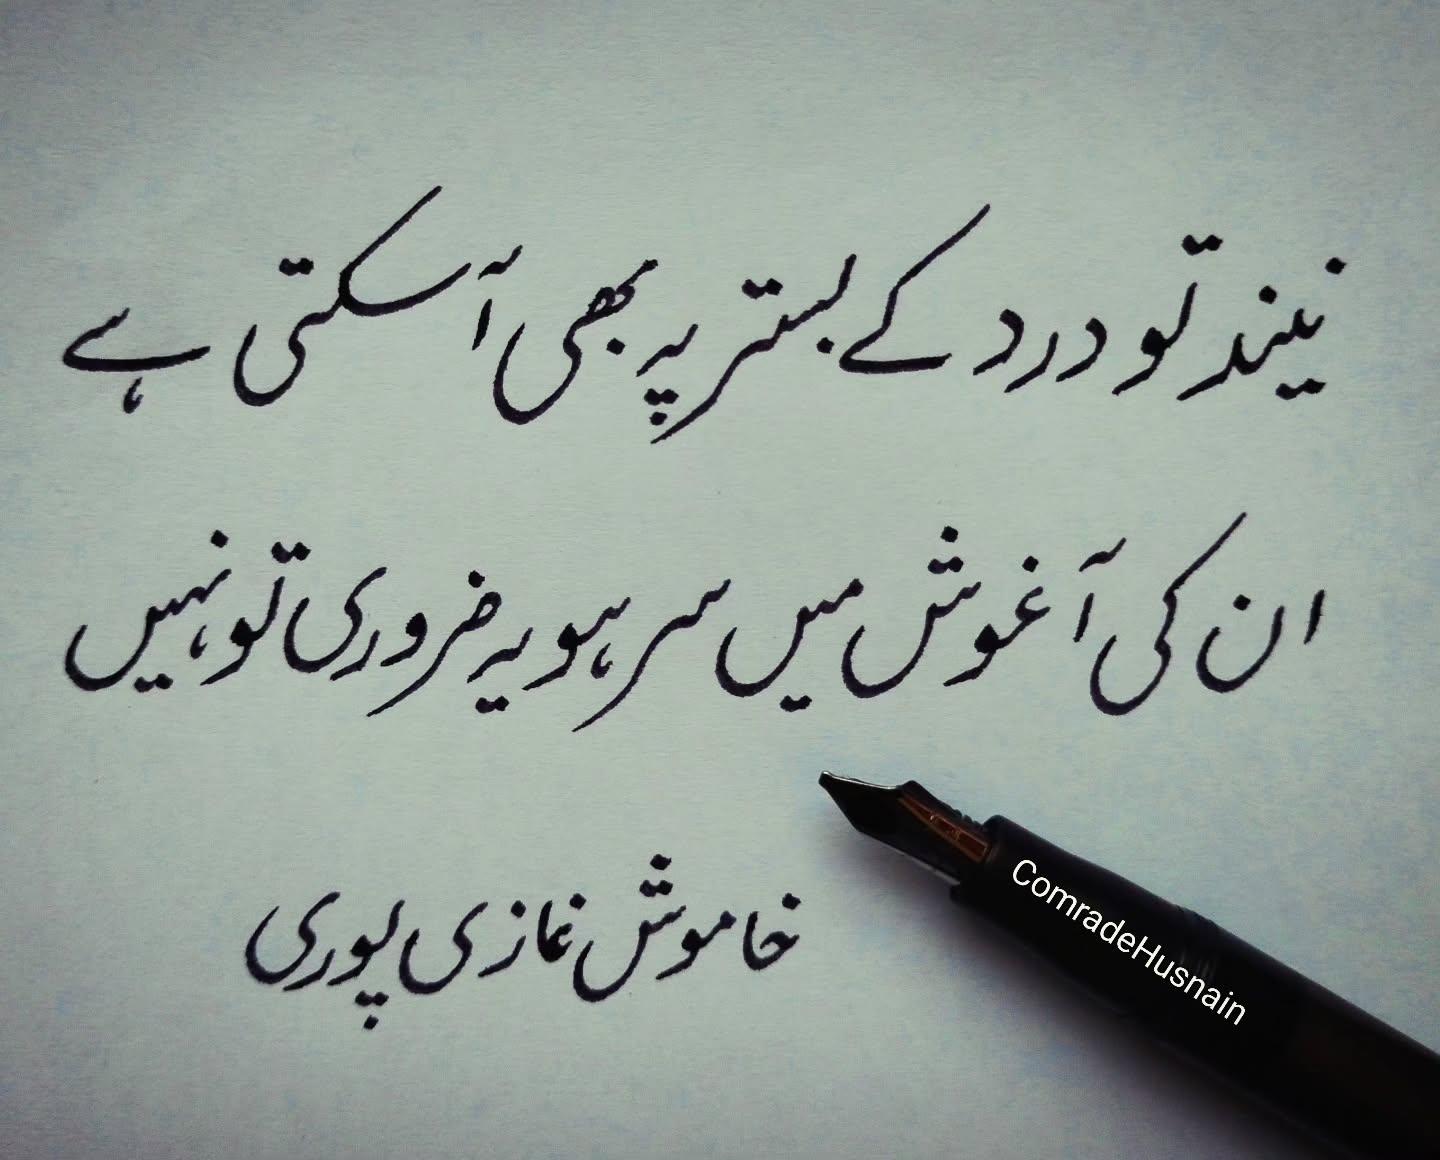 نیند تو درد کے بستر پہ بھی آ سکتی ہے
ان کی آغوش میں سر ہو یہ ضروری تو نہیں
خاموش غازی پوری
ComradeHusnain